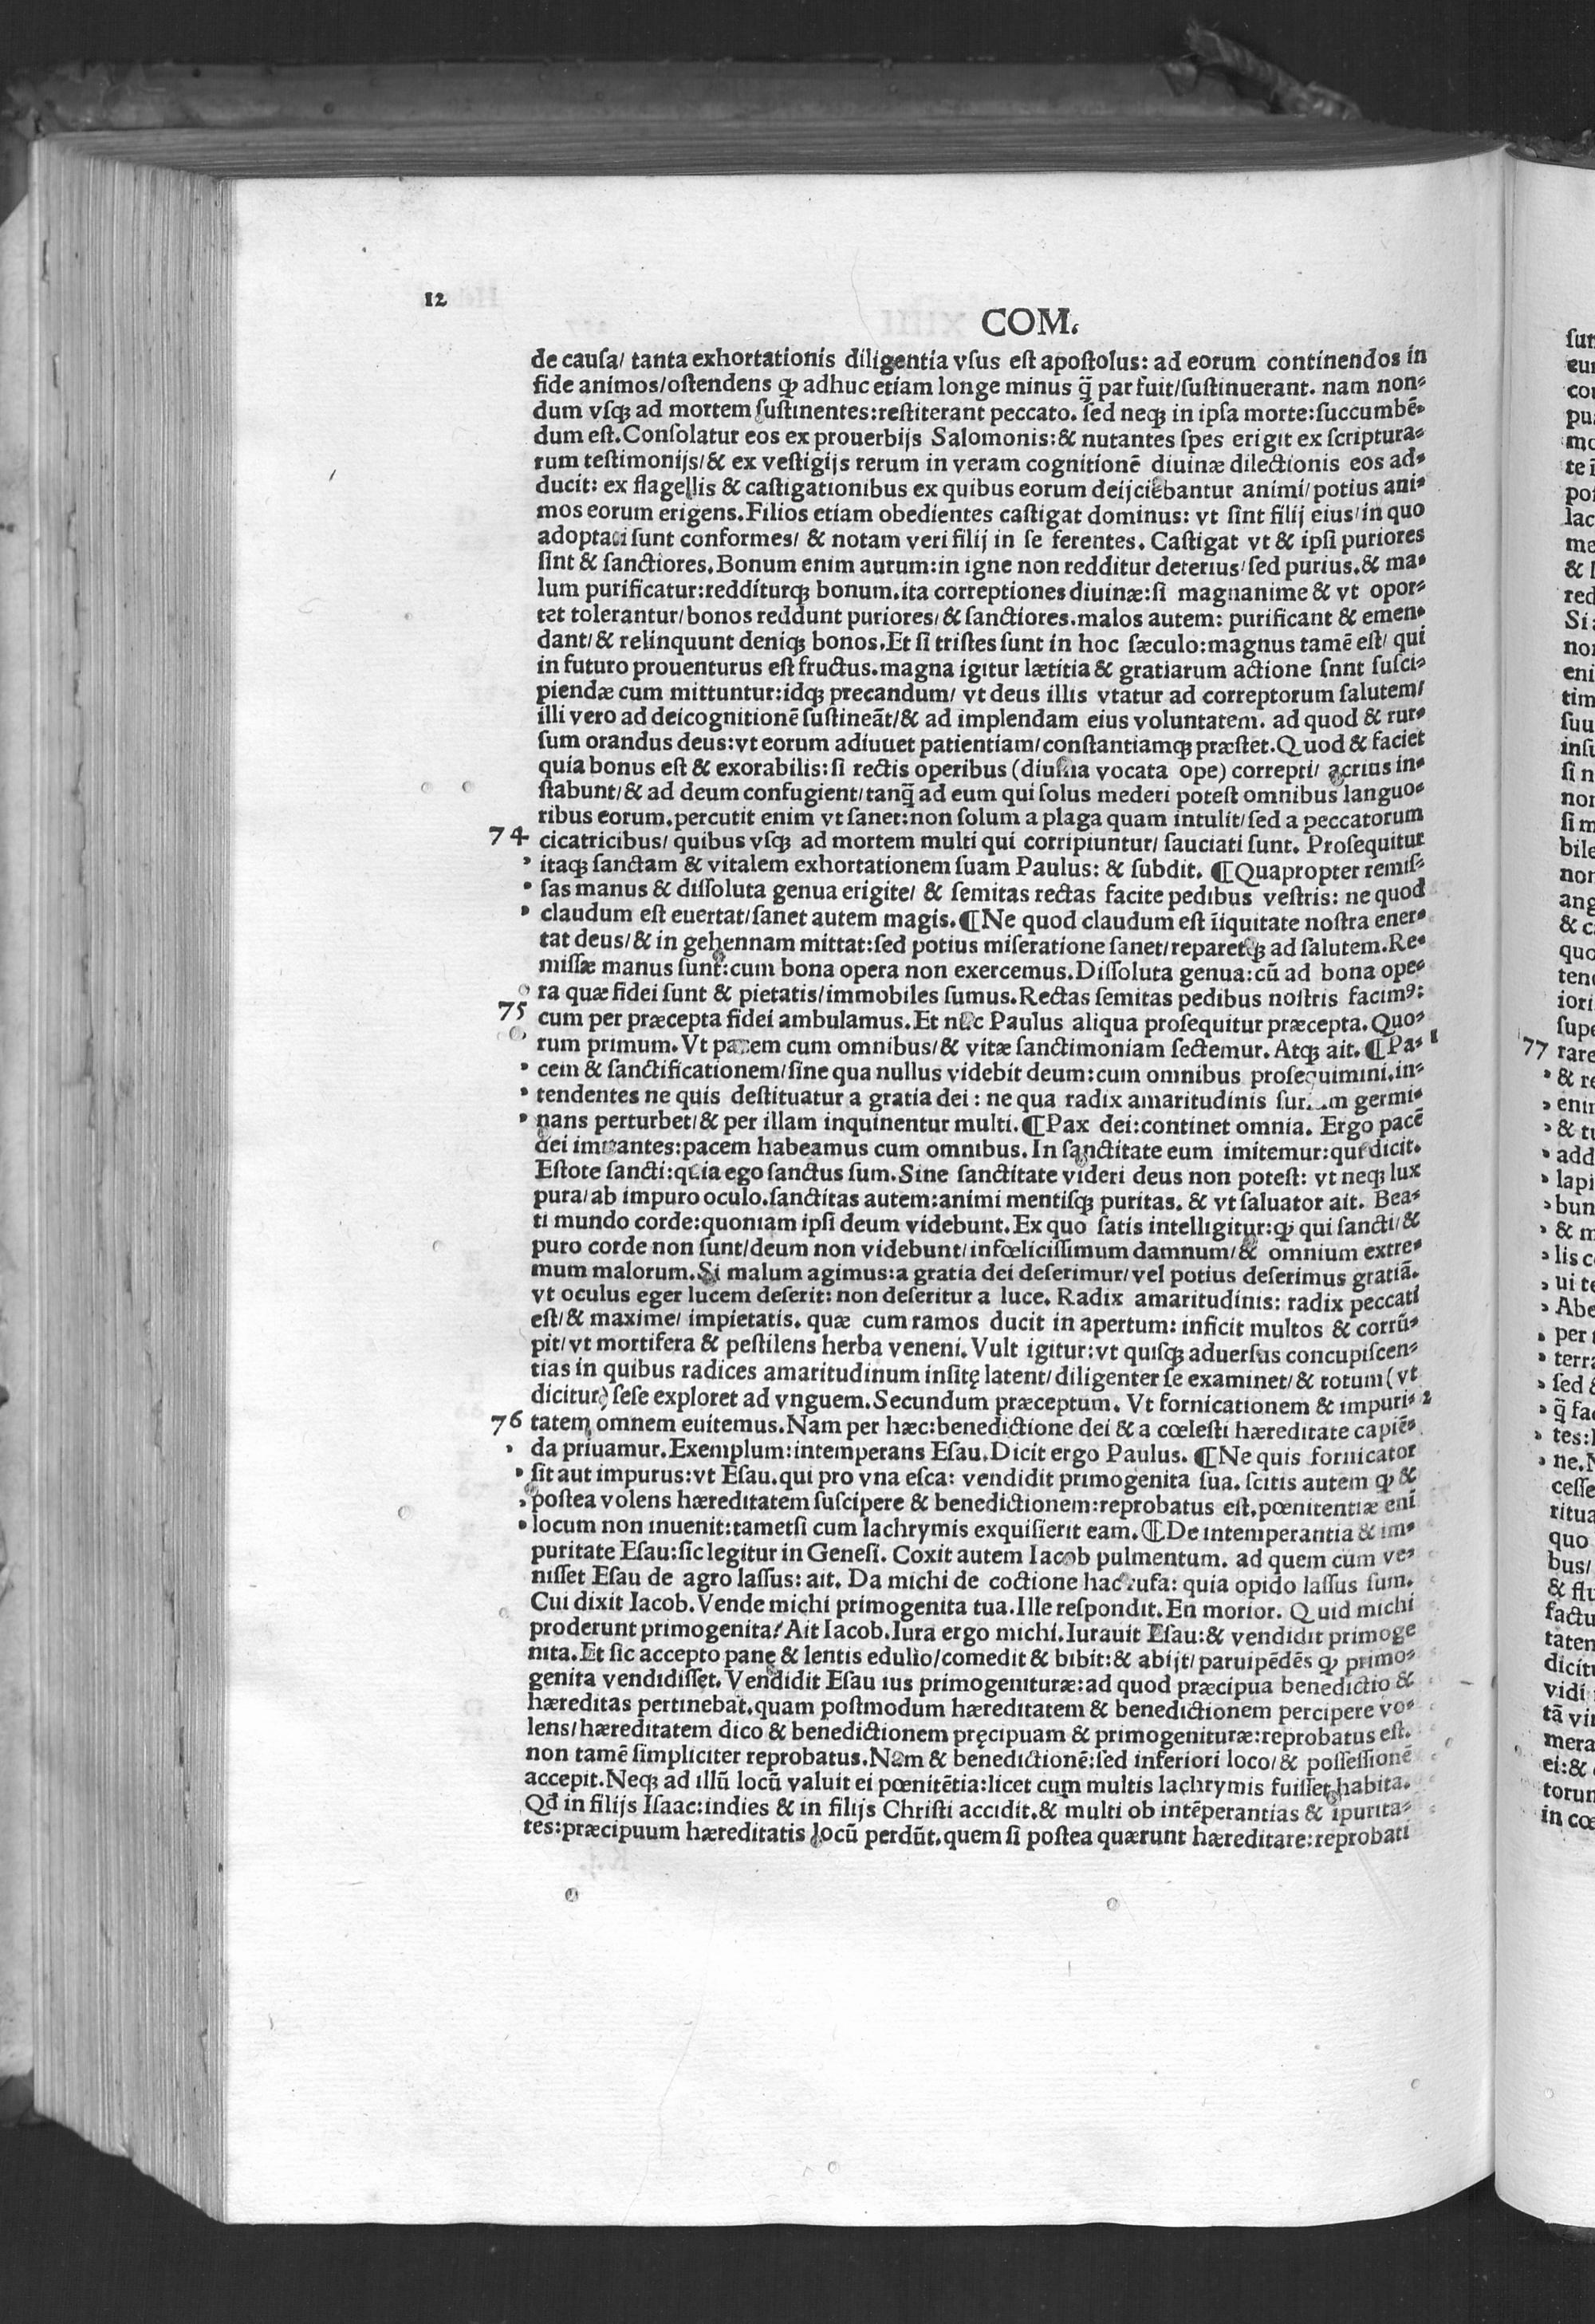 12
COM.
de cauſa/ tanta exhortationis diligentia vſus eſt apoſtolus: ad eorum continendos in
fide animos/oſtendens ꝙ adhuc etiam longe minus q̃ par fuit/ſuſtinuerant. nam non⸗
dum vſqꝫ ad mortem ſuſtinentes:reſtiterant peccato. ſed neqꝫ in ipſa morte:ſuccumbẽ⸗
dum eſt.Conſolatur eos ex prouerbijs Salomonis:& nutantes ſpes erigit ex ſcriptura⸗
rum teſtimonijs/& ex veſtigijs rerum in veram cognitionẽ diuinæ dilectionis eos ad⸗
ducit: ex flagellis & caſtigationibus ex quibus eorum deijciebantur animi/potius ani⸗
mos eorum erigens.Filios etiam obedientes caſtigat dominus: vt ſint filij eius/in quo
adoptati ſunt conformes/ & notam veri filij in ſe ferentes. Caſtigat vt & ipſi puriores
ſint & ſanctiores.Bonum enim aurum:in igne non redditur deterius/ſed purius.& ma⸗
lum purificatur:redditurqꝫ bonum.ita correptiones diuinæ:ſi magnanime & vt opor⸗
tet tolerantur/bonos reddunt puriores/& ſanctiores.malos autem: purificant & emen⸗
dant/& relinquunt deniqꝫ bonos.Et ſi triſtes ſunt in hoc ſæculo:magnus tamẽ eſt/ qui
in futuro prouenturus eſt fructus.magna igitur lætitia & gratiarum actione ſnnt ſuſci⸗
piendæ cum mittuntur:idqꝫ precandum/ vt deus illis vtatur ad correptorum ſalutem/
illi vero ad deicognitionẽ ſuſtineãt/& ad implendam eius voluntatem. ad quod & rur⸗
ſum orandus deus:vt eorum adiuuet patientiam/conſtantiamqꝫ præſtet.Quod & faciet
quia bonus eſt & exorabilis:ſi rectis operibus (diuina vocata ope) correpti/ acrius in⸗
ſtabunt/& ad deum confugient/tanq̃ ad eum qui ſolus mederi poteſt omnibus languo⸗
ribus eorum.percutit enim vt ſanet:non ſolum a plaga quam intulit/ſed a peccatorum
74 cicatricibus/ quibus vſqꝫ ad mortem multi qui corripiuntur/ ſauciati ſunt. Proſequitur
itaqꝫ ſanctam & vitalem exhortationem ſuam Paulus: & ſubdit. ¶Quapropter remiſ⸗
ſas manus & diſſoluta genua erigite/ & ſemitas rectas facite pedibus veſtris: ne quod
claudum eſt euertat/ſanet autem magis.¶Ne quod claudum eſt ĩiquitate noſtra euer⸗
tat deus/& in gehennam mittat:ſed potius miſeratione ſanet/reparetqꝫ ad ſalutem.Re⸗
miſſæ manus ſunt:cum bona opera non exercemus.Diſſoluta genua:cũ ad bona ope⸗
ra quæ fidei ſunt & pietatis/immobiles ſumus.Rectas ſemitas pedibus noſtris facimꝰ:
75 cum per præcepta fidei ambulamus.Et nũc Paulus aliqua proſequitur præcepta.Quo⸗
rum primum.Vt pacem cum omnibus/& vitæ ſanctimoniam ſectemur.Atqꝫ ait.¶Pa⸗ 1
cem & ſanctificationem/ſine qua nullus videbit deum:cum omnibus proſequimini.in⸗
tendentes ne quis deſtituatur a gratia dei : ne qua radix amaritudinis germi⸗
nans perturbet/& per illam inquinentur multi.¶Pax dei:continet omnia. Ergo pacẽ
dei imitantes:pacem habeamus cum omnibus.In ſanctitate eum imitemur:qui dicit.
Eſtote ſancti:quia ego ſanctus ſum.Sine ſanctitate videri deus non poteſt: vt neqꝫ lux
pura/ab impuro oculo.ſanctitas autem:animi mentiſqꝫ puritas. & vt ſaluator ait. Bea⸗
ti mundo corde:quoniam ipſi deum videbunt.Ex quo ſatis intelligitur:ꝙ qui ſancti/&
puro corde non ſunt/deum non videbunt/infœliciſſimum damnum/& omnium extre⸗
mum malorum.Si malum agimus:a gratia dei deſerimur/vel potius deſerimus gratiã.
vt oculus eger lucem deſerit: non deſeritur a luce. Radix amaritudinis: radix peccati
eſt/& maxime/ impietatis. quæ cum ramos ducit in apertum: inficit multos & corrũ⸗
pit/vt mortifera & peſtilens herba veneni.Vult igitur:vt quiſqꝫ aduerſus concupiſcen⸗
tias in quibus radices amaritudinum inſitę latent/diligenter ſe examinet/& totum(vt
dicitur) ſeſe exploret ad vnguem.Secundum præceptum. Vt fornicationem & impuri⸗ 2
76 tatem omnem euitemus.Nam per hæc:benedictione dei & a cœleſti hæreditate capiẽ⸗
da priuamur.Exemplum:intemperans Eſau.Dicit ergo Paulus. ¶Ne quis fornicator
ſit aut impurus:vt Eſau.qui pro vna eſca: vendidit primogenita ſua. ſcitis autem ꝙ &
poſtea volens hæreditatem ſuſcipere & benedictionem:reprobatus eſt.pœnitentiæ enĩ
locum non inuenit:tametſi cum lachrymis exquiſierit eam.¶De intemperantia & im⸗
puritate Eſau:ſic legitur in Geneſi. Coxit autem Iacob pulmentum. ad quem cum ve⸗
niſſet Eſau de agro laſſus: ait. Da michi de coctione hac rufa: quia opido laſſus ſum.
Cui dixit Iacob.Vende michi primogenita tua.Ille reſpondit.En morior. Quid michi
proderunt primogenita?Ait Iacob.Iura ergo michi.Iurauit Eſau:& vendidit primoge
nita.Et ſic accepto pane & lentis edulio/comedit & bibit:& abijt/paruipẽdẽs ꝙ primo⸗
genita vendidiſſet.Vendidit Eſau ius primogenituræ:ad quod præcipua benedictio &
hæreditas pertinebat.quam poſtmodum hæreditatem & benedictionem percipere vo⸗
lens/hæreditatem dico & benedictionem pręcipuam & primogenituræ:reprobatus eſt.
non tamẽ ſimpliciter reprobatus.Nam & benedictionẽ:ſed inferiori loco/& poſſeſſionẽ
accepit.Neqꝫ ad illũ locũ valuit ei pœnitẽtia:licet cum multis lachrymis fuiſſet habita.
Qđ in filijs Iſaac:indies & in filijs Chriſti accidit.& multi ob intẽperantias & ĩpurita⸗
tes:præcipuum hæreditatis locũ perdũt.quem ſi poſtea quærunt hæreditare:reprobati
77